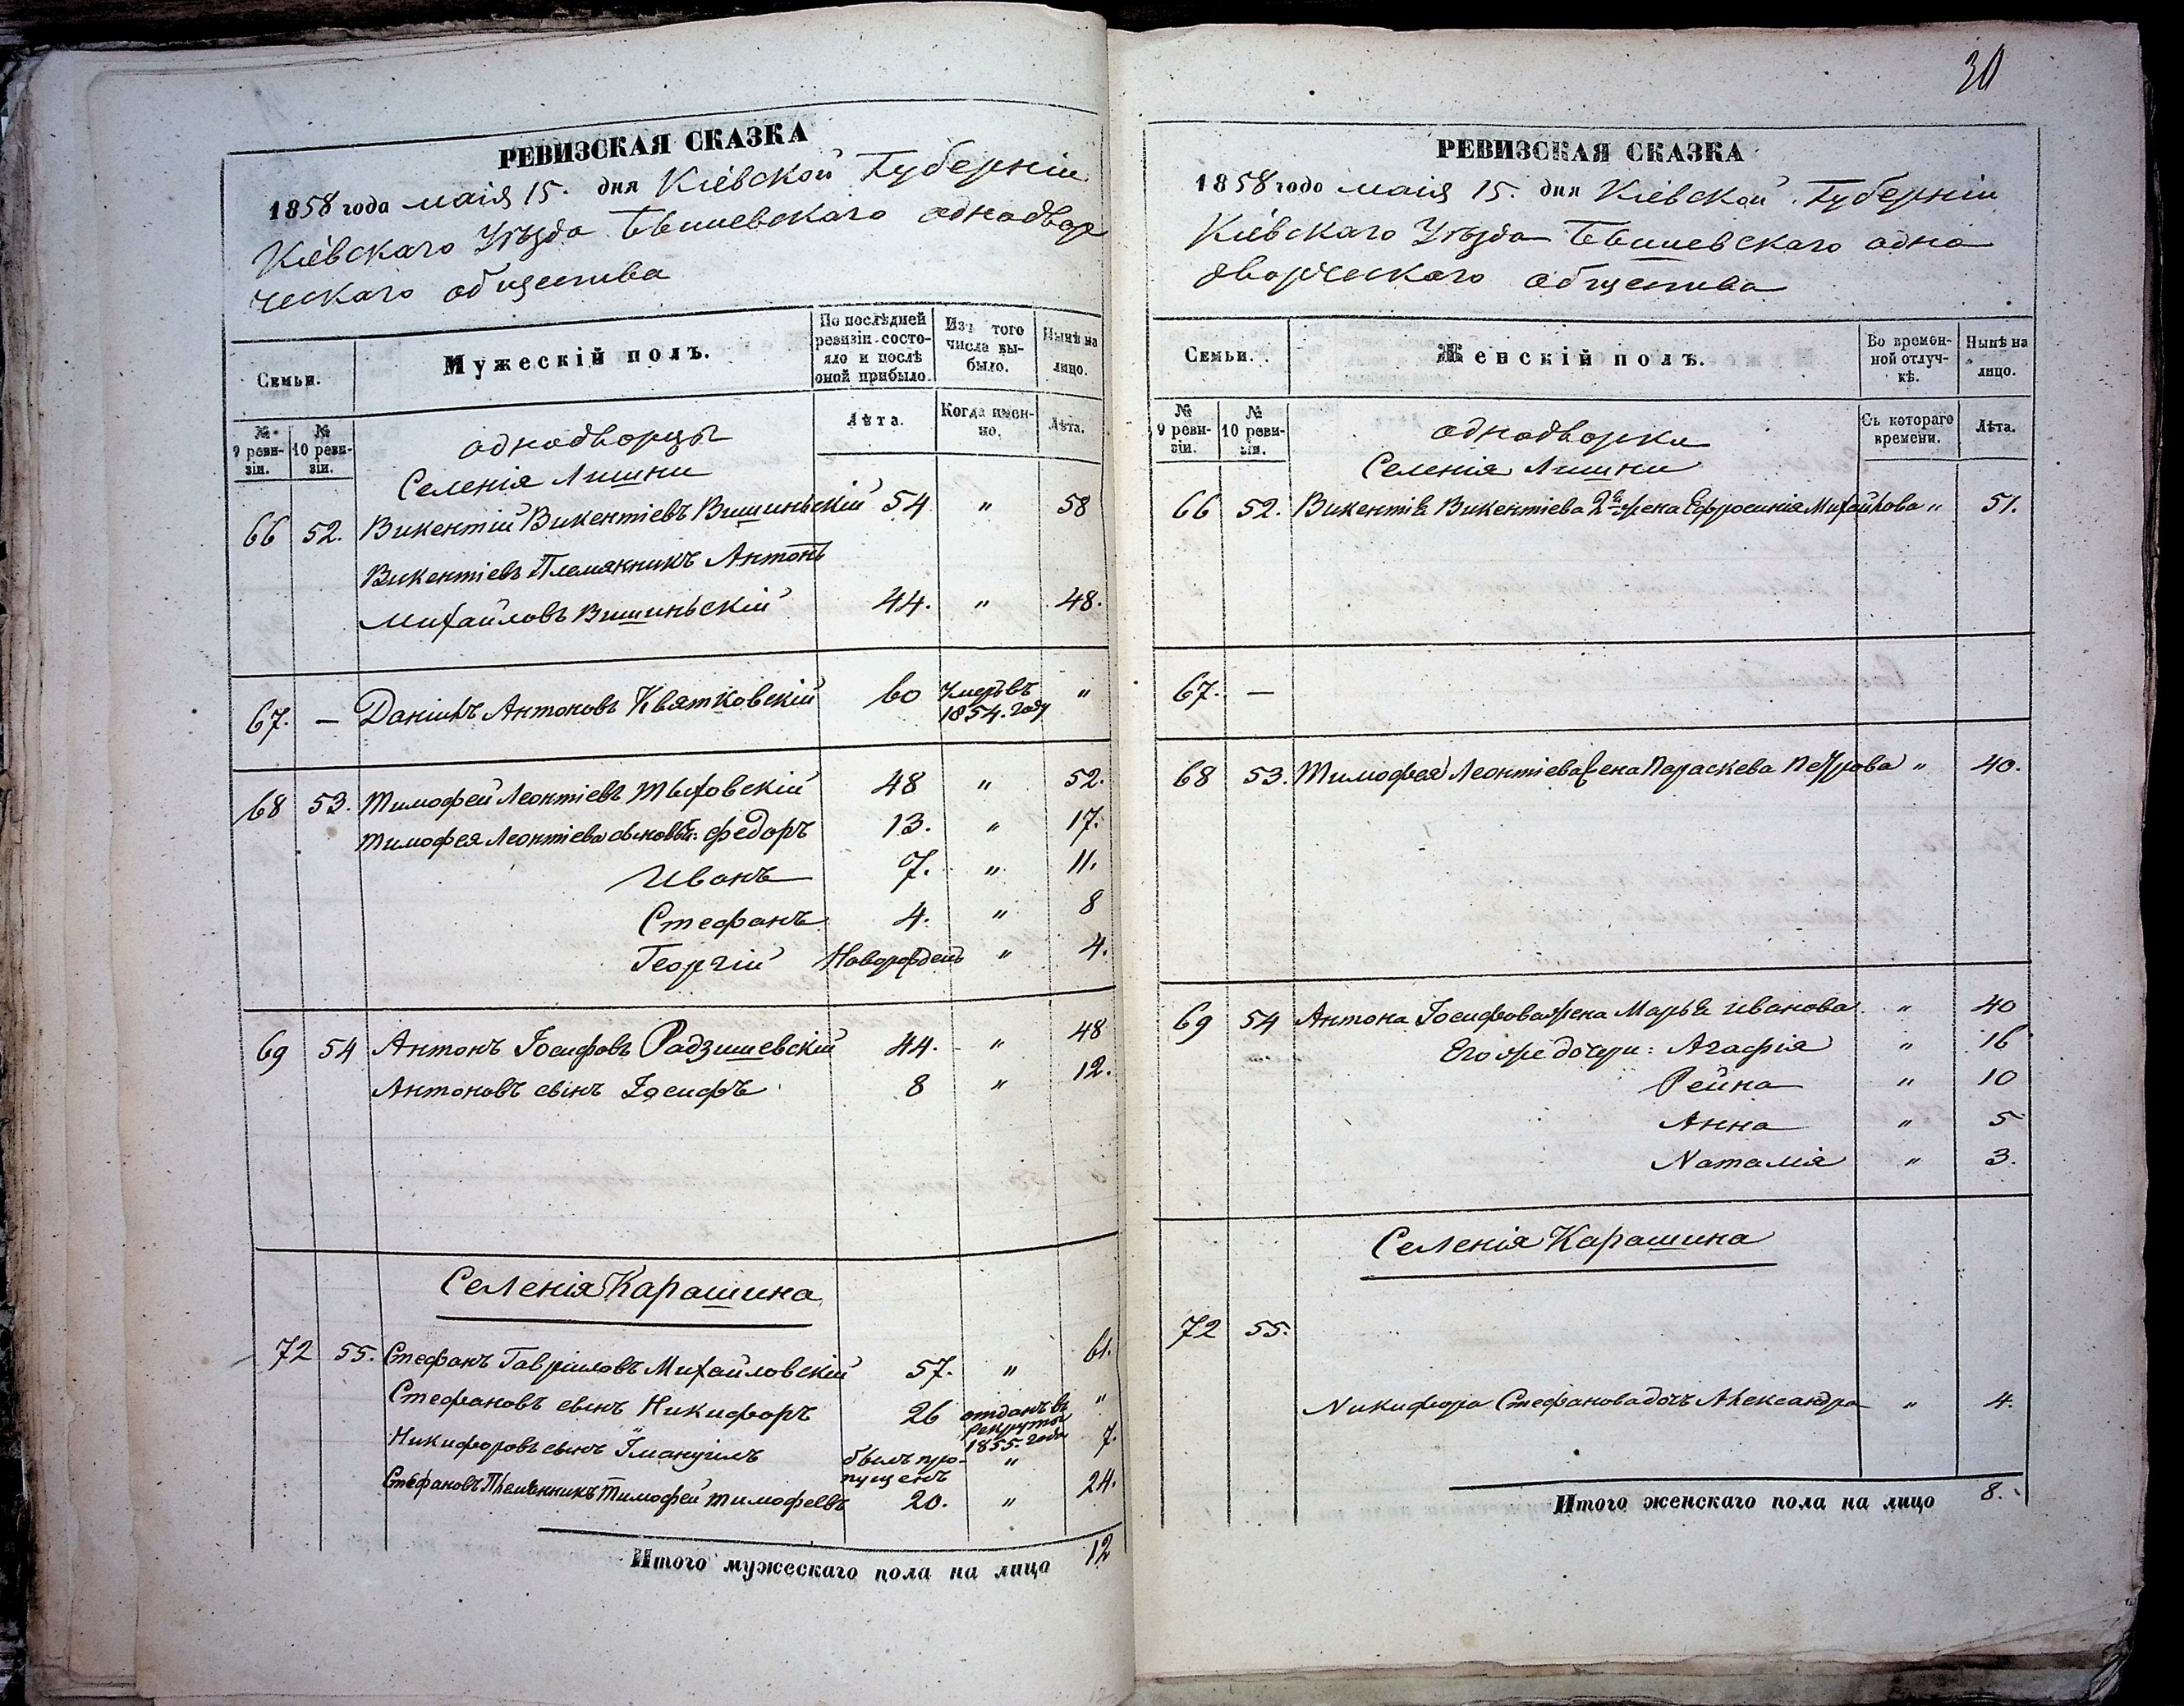 РЕВИЗСКАЯ СКАЗКА
1858 года маія 15. дня Кіевской Губерніи
Кіевскаго Уѣзда Бышевскаго однодвор
ческаго общества
Семьи.
Мужескій полъ.
По послѣдней ревизіи состояло и послѣ оной прибыло.
Изъ того числа выбыло.
Нынѣ на лицо.
№ 9 ревизіи.
№ 10 ревизіи.
Лѣта.
Когда именно.
Лѣта.
однодворцы
Селенія Лишни
66 52. Викентій Викентіевъ Вишиньскій 54 " 58
Викентіевъ Племянникъ Антонъ
Михайловъ Вишиньскій 44. " 48.
67. — Даніилъ Антоновъ Квятковскій 60 Умеръ въ 1854. году "
68 53. Тимофей Леонтіевъ Тыховскій 48 " 52.
Тимофея Леонтіева сыновья: Федоръ 13. " 17.
Иванъ 7. " 11.
Стефанъ 4. " 8
Георгій Новорожденъ " 4.
69 54 Антонъ Іосифовъ Радзишевскій 44. " 48
Антоновъ сынъ Іосифъ 8 " 12.
Селенія Карашина
72 55. Стефанъ Гавріиловъ Михайловскій 57. " 61.
Стефановъ сынъ Никифоръ 26 отданъ въ рекруты 1855. года "
Никифоровъ сынъ Імануилъ былъ пропущенъ " 7.
Стефановъ Племянникъ Тимофей Тимофеевъ 20. " 24.
Итого мужескаго пола на лицо 12
30
РЕВИЗСКАЯ СКАЗКА
1858 года маія 15. дня Кіевской Губерніи
Кіевскаго Уѣзда Бышевскаго одно
дворческаго общества
Семьи.
Женскій полъ.
Во временной отлучкѣ.
Нынѣ на лицо.
№ 9 ревизіи.
№ 10 ревизіи.
Съ котораго времени.
Лѣта.
однодворки
Селенія Лишни
66 52. Викентія Викентіева 2я жена Ефросинія Михайлова " 51.
67. —
68 53. Тимофея Леонтіева жена Параскева Петрова " 40.
69 54 Антона Іосифова жена Марья Иванова " 40
Его же дочери: Агафія " 16
Рейна " 10
Анна " 5
Наталія " 3.
Селенія Карашина
72 55.
Никифора Стефанова дочь Александра " 4.
Итого женскаго пола на лицо 8.